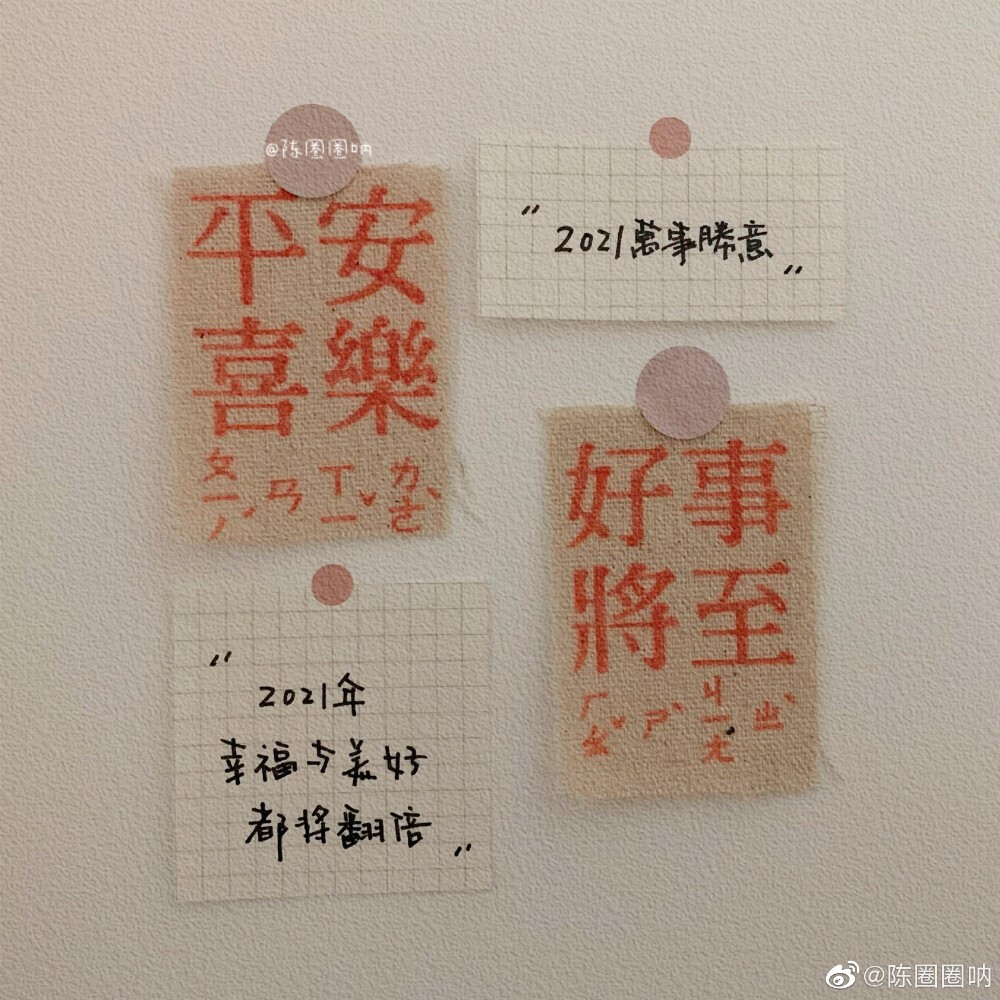 @陈圈圈呐
平安
喜樂
"2021萬事勝意"
好事
將至
ㄏㄠˇ ㄕˋ ㄐㄧㄤ ㄓˋ
"
2021年
幸福与美好
都将翻倍"
@陈圈圈呐